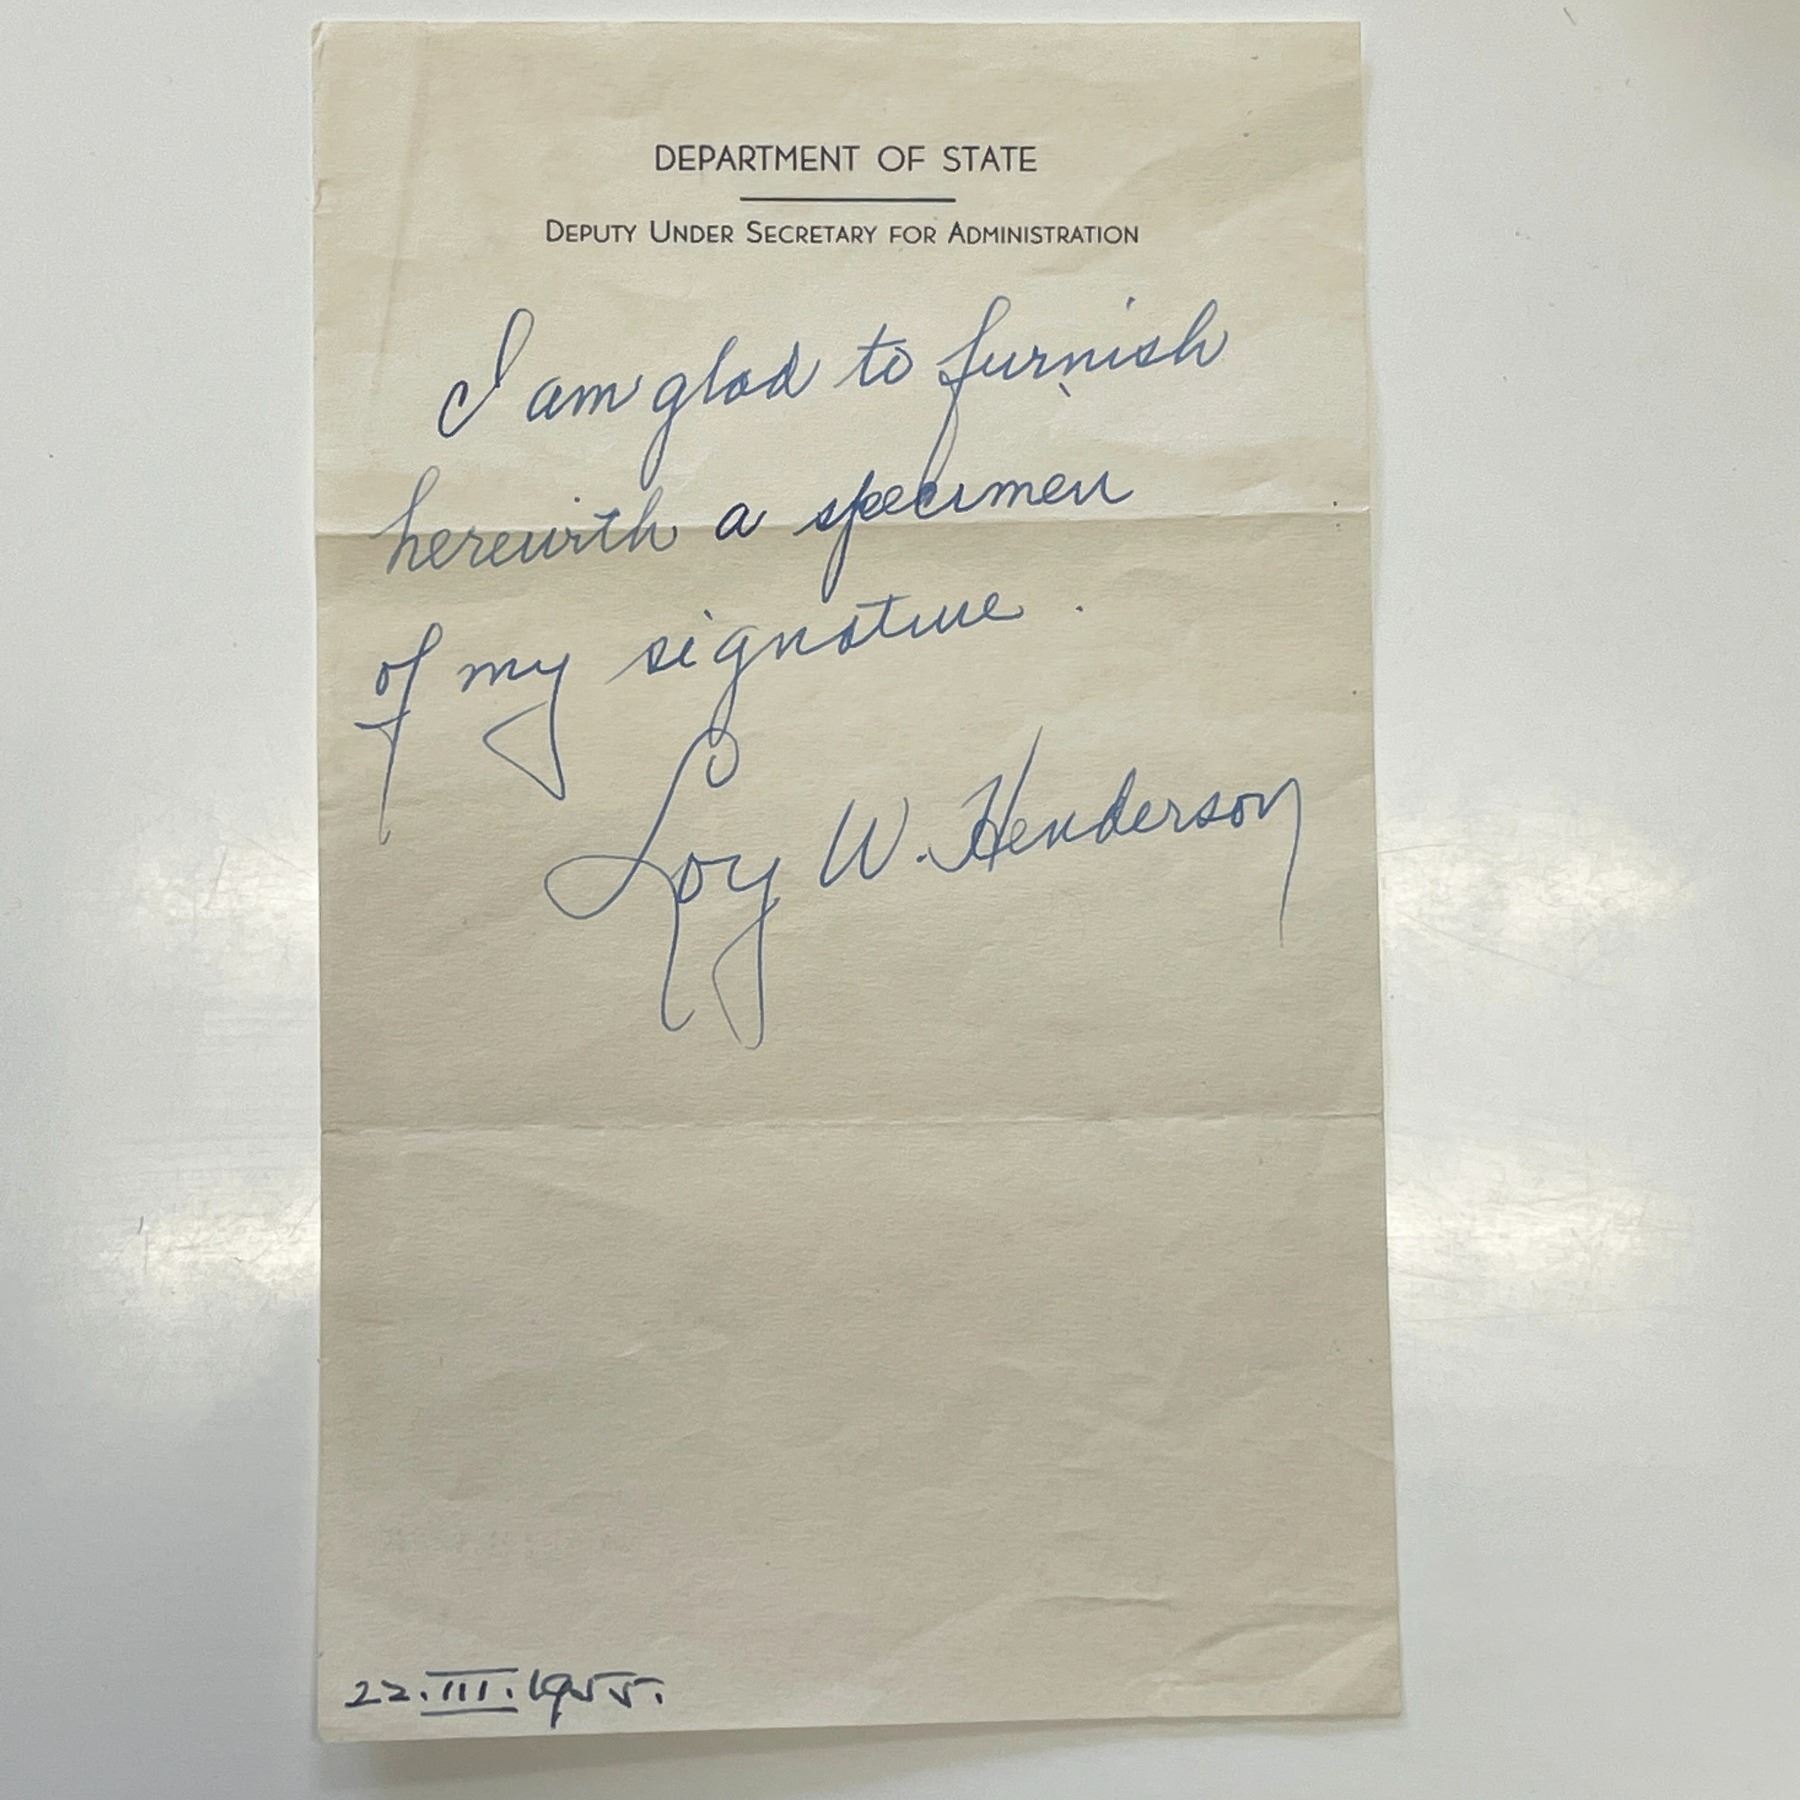 DEPARTMENT OF STATE
DEPUTY UNDER SECRETARY FOR ADMINISTRATION
I am glad to furnish
herewith a specimen
of my signature.
Loy W. Henderson
22.III.1955.